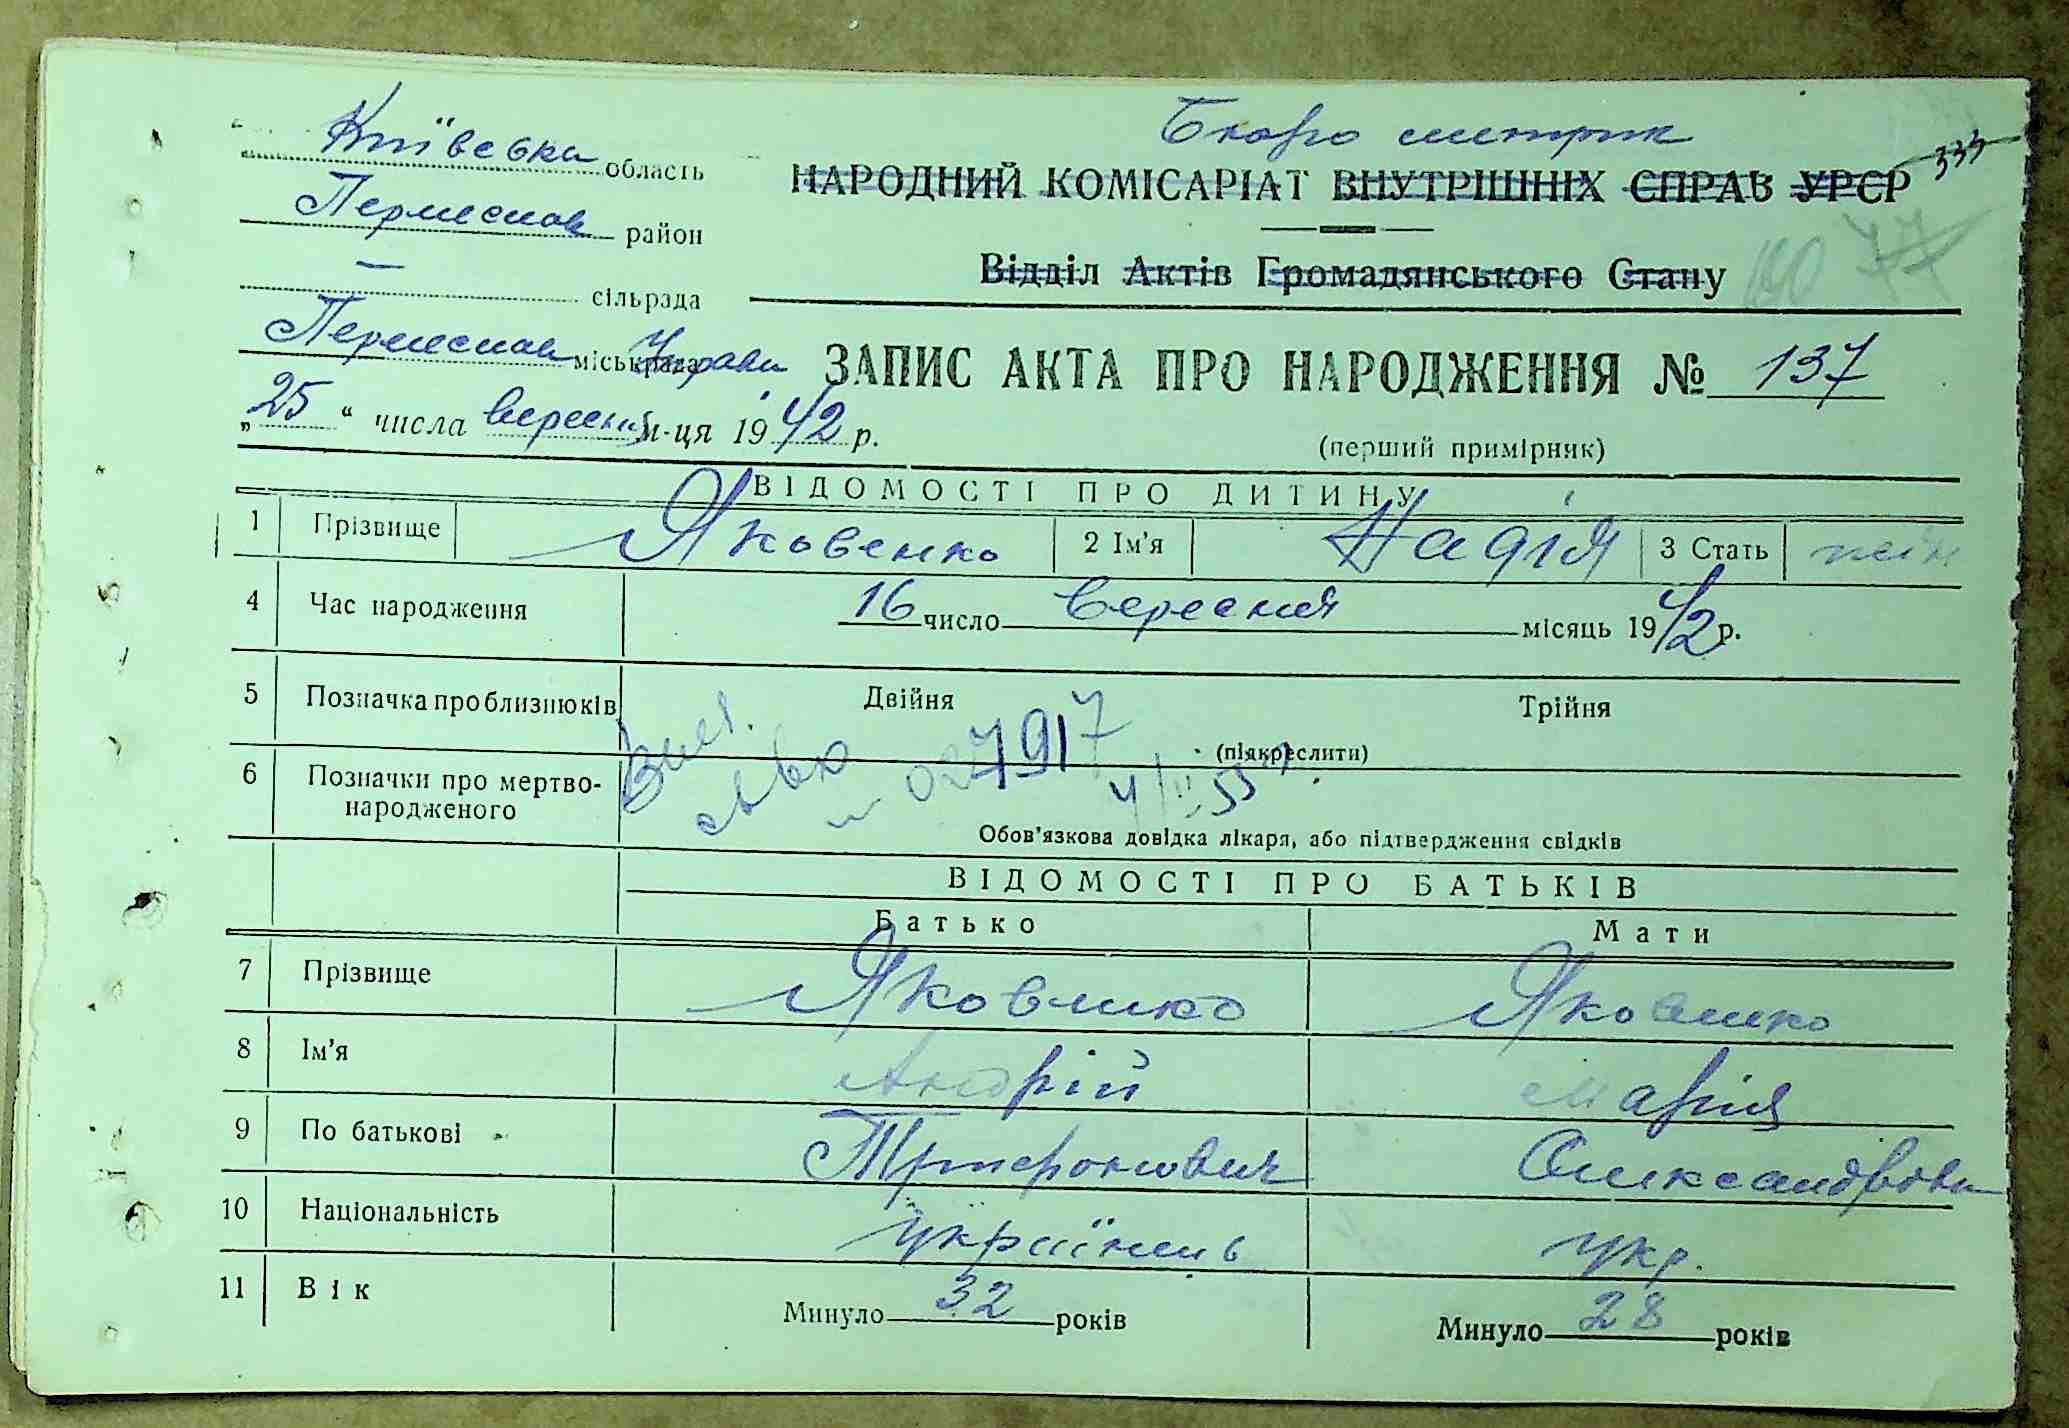 Київська область
Бюро метрик
НАРОДНИЙ КОМІСАРІАТ ВНУТРІШНІХ СПРАВ УРСР
335
район
Відділ Актів Громадянського Стану
77
— сільрада
міськрада Управи
ЗАПИС АКТА ПРО НАРОДЖЕННЯ № 137
„25“ числа вересня м-ця 1942 р.
(перший примірник)
ВІДОМОСТІ ПРО ДИТИНУ
1 Прізвище Яковенко 2 Ім'я Надія 3 Стать
4 Час народження 16 число вересня місяць 1942 р.
5 Позначка про близнюків Двійня Трійня
(підкреслити)
6 Позначки про мертвонародженого
027917
Обов'язкова довідка лікаря, або підтвердження свідків
ВІДОМОСТІ ПРО БАТЬКІВ
Батько Мати
7 Прізвище Яковенко Яковенко
8 Ім'я Андрій Марія
9 По батькові Трифонович Олександровна
10 Національність українець укр.
11 Вік Минуло 32 років Минуло 28 років